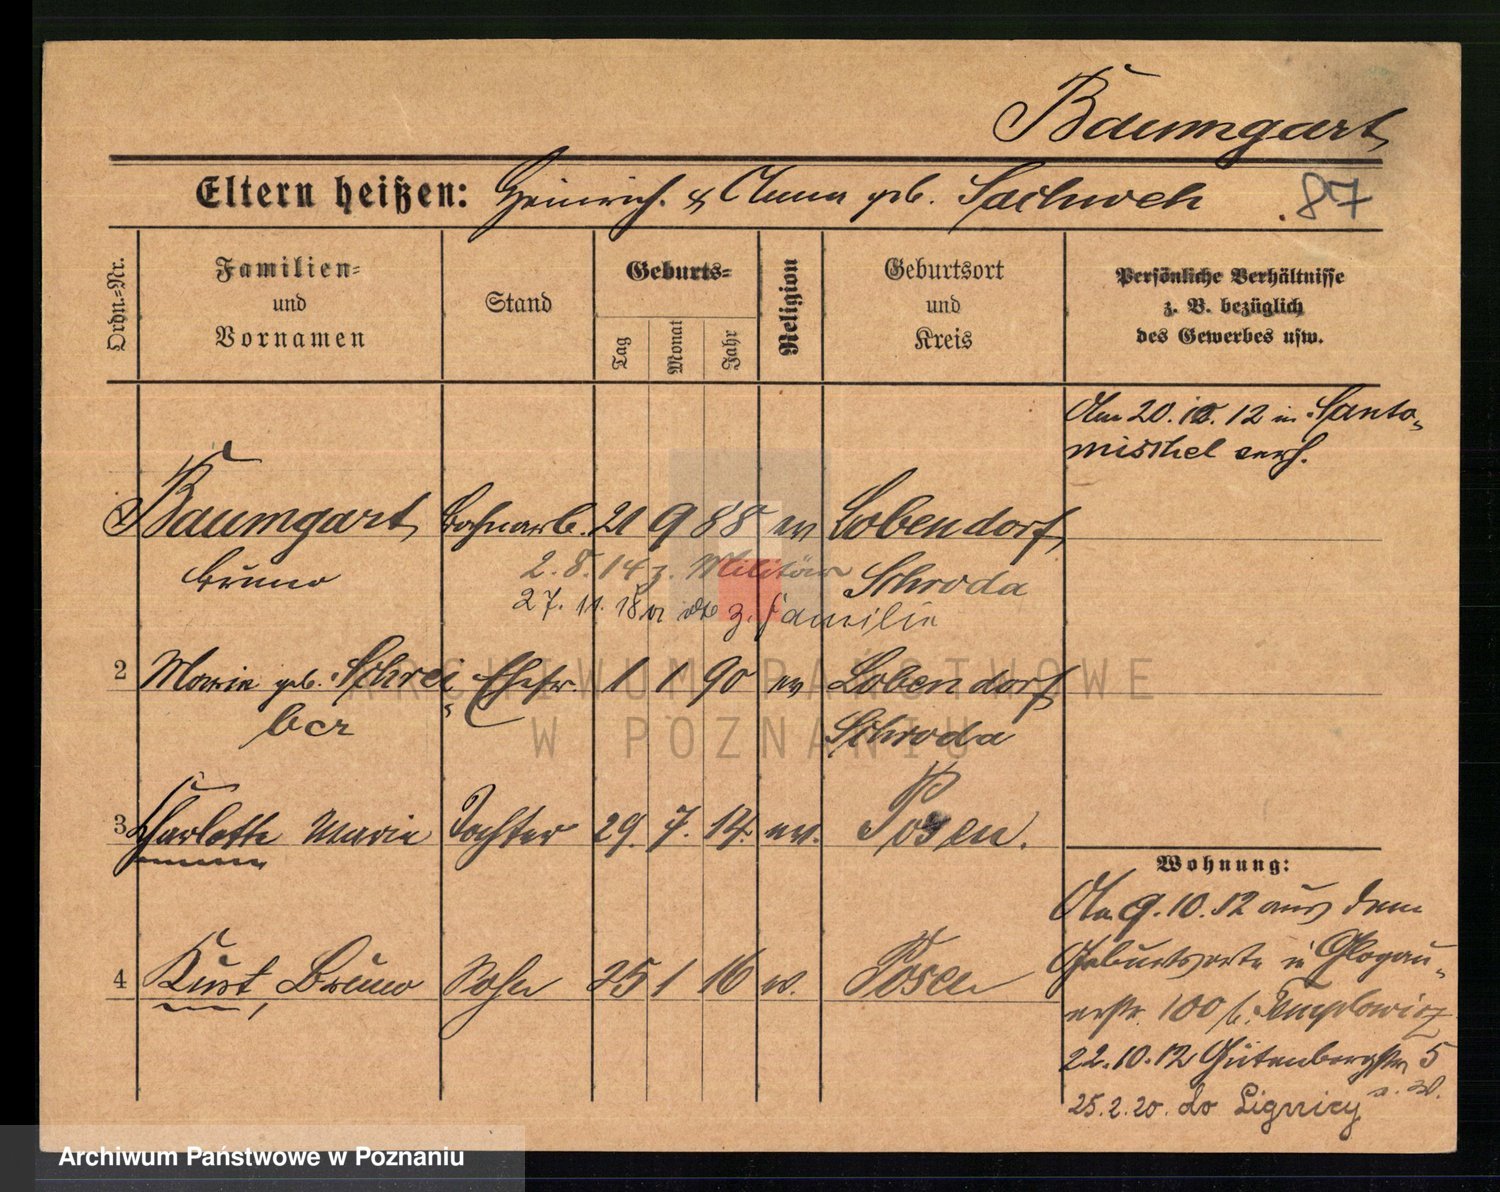 Baumgart
Eltern heißen: Heinrich. & Anna geb. Sachweh
87
Ordn.=Nr.
Familien=
und
Vornamen
Stand
Geburts=
Tag
Monat
Jahr
Religion
Geburtsort
und
Kreis
Persönliche Verhältnisse
z. B. bezüglich
des Gewerbes usw.
Am 20.10.12 in Santo-
mischel verh.
Baumgart Bahnarb. 21 9 88 ev Lobendorf
Bruno
2.8.14 z. Militär Schroda
27. 11. 18 z. Familie
2 Marie geb. Schrei Ehefr. 1 1 90 ev Lobendorf
ber Schroda
3 Charlotte Marie Tochter 29. 7. 14. ev. Posen.
4 Kurt Bruno Sohn 25 1 16 ev. Posen
Wohnung:
Am 9.10.12 aus dem
Geburtsorte in Glogau-
erstr. 100 b.
22.10.12 Gutenbergstr 5
25.2.20. do Lignicy
ARCHIWUM PAŃSTWOWE
W POZNANIU
Archiwum Państwowe w Poznaniu